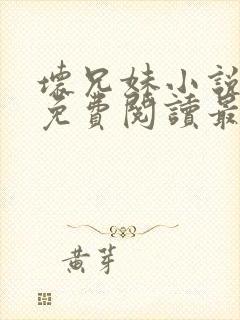 壞兄妹小說
免費閱讀最
黃芽